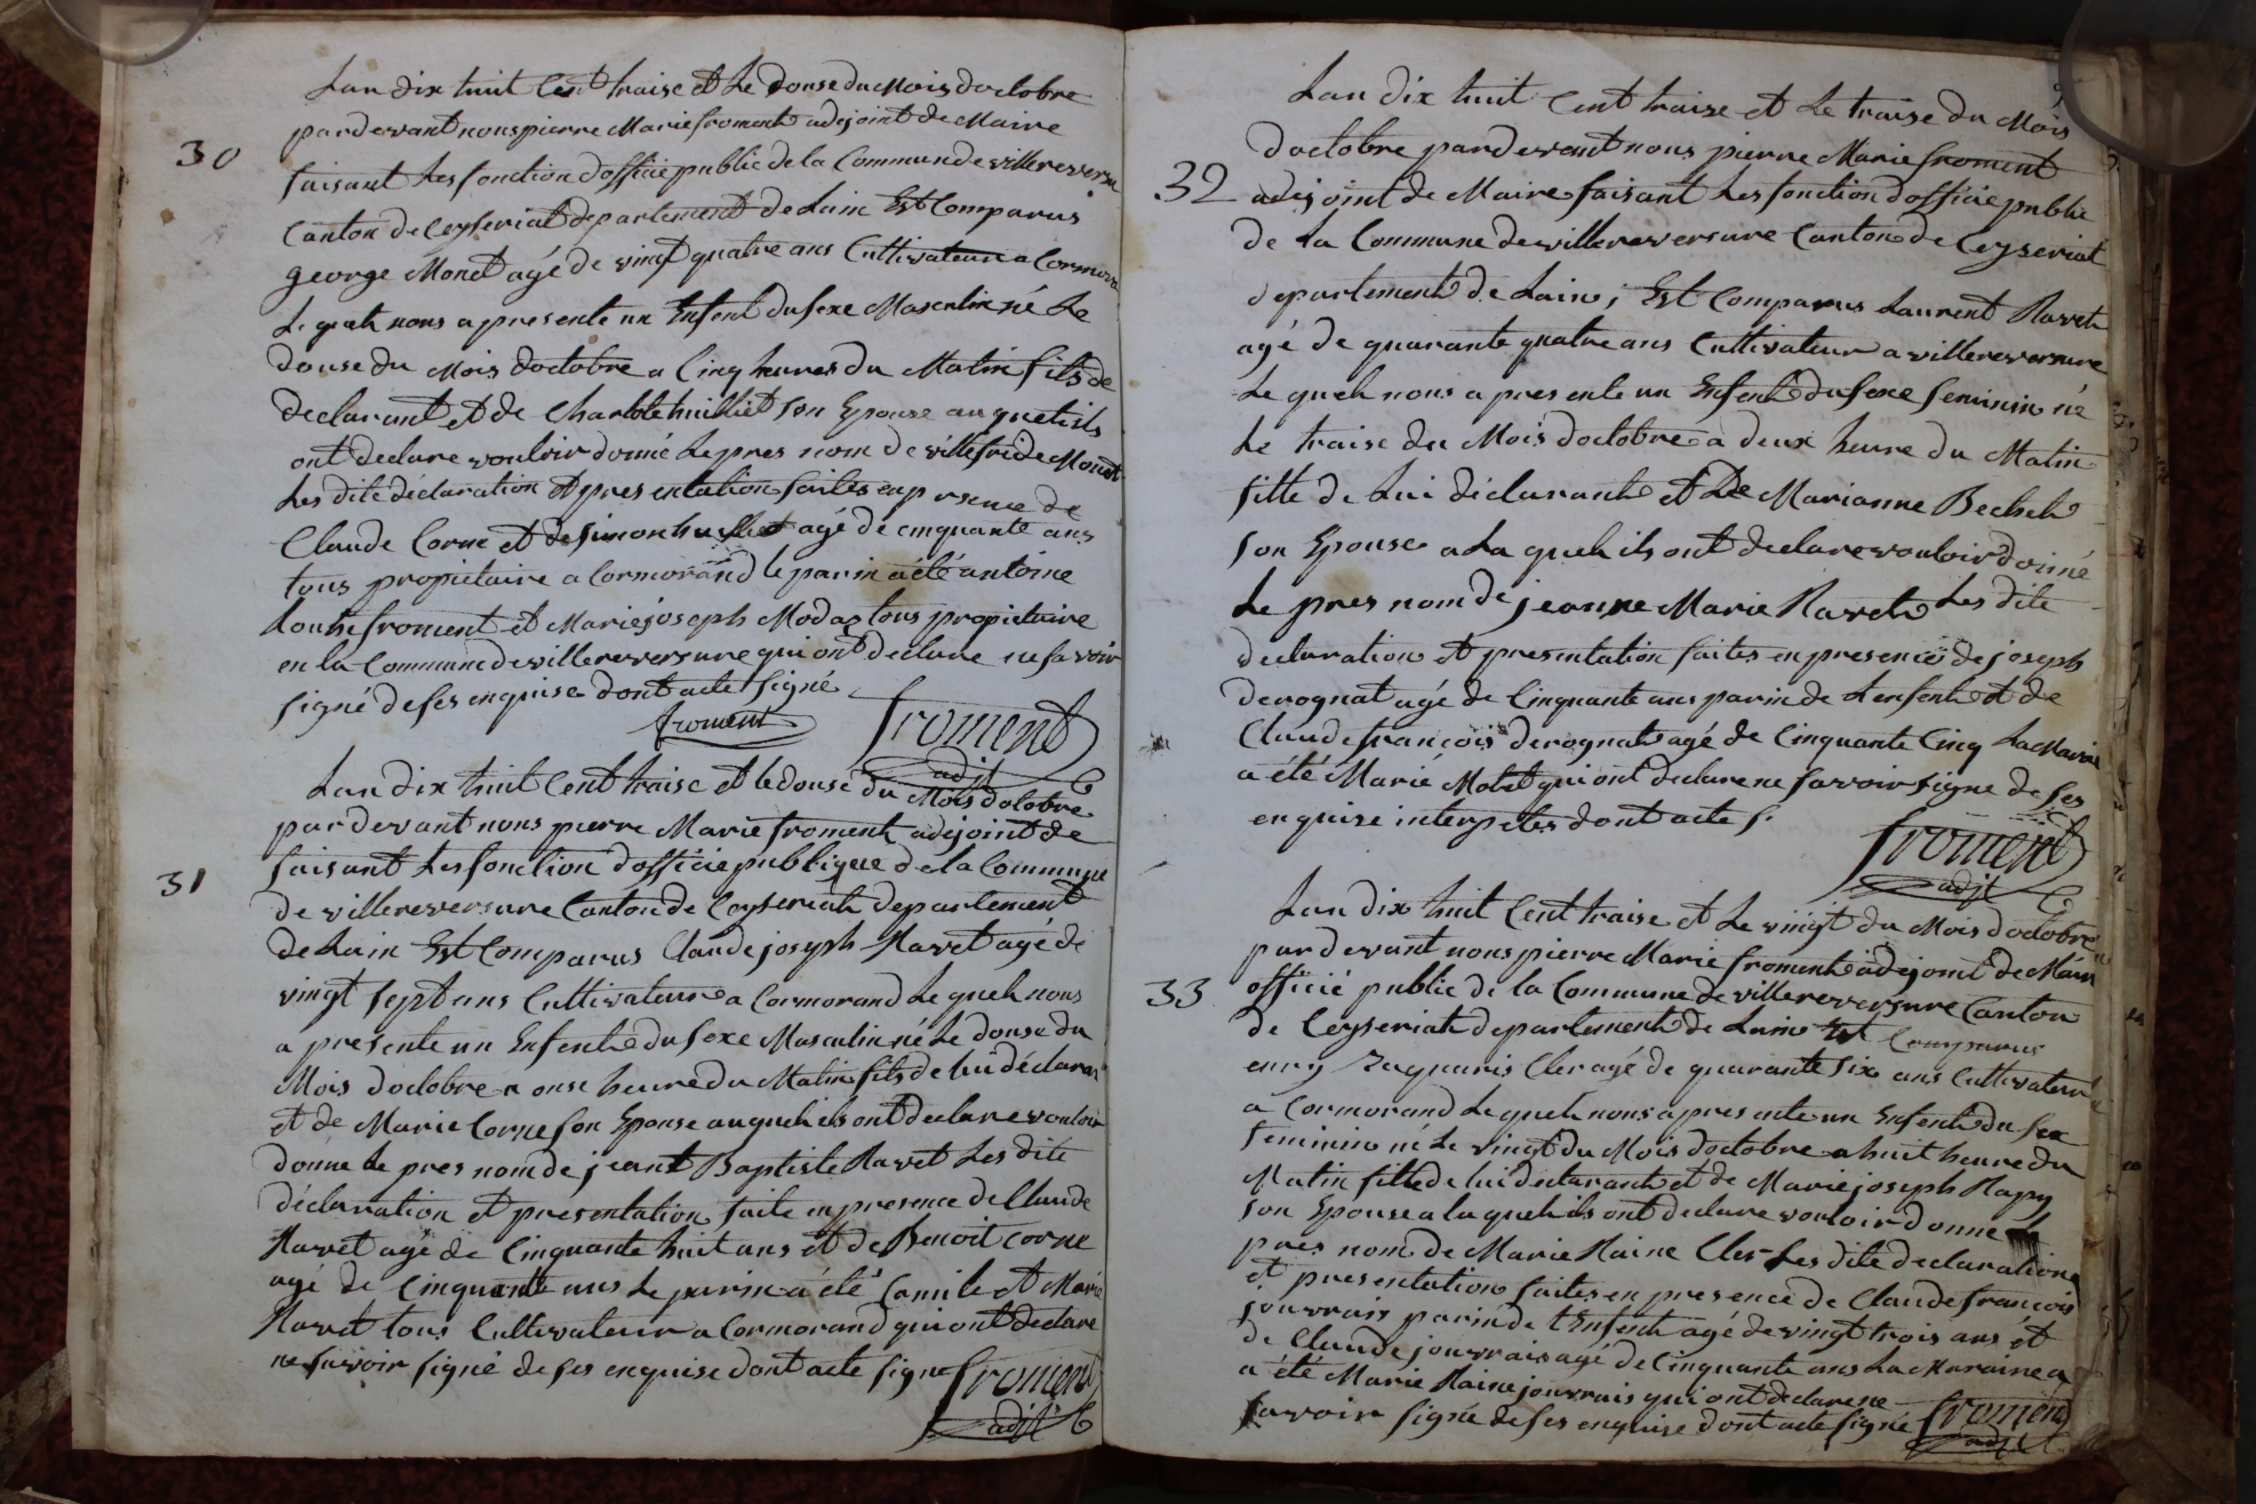 30
Lan dix huit Cent traise et Le douse du Mois doctobre
pardevant nous pierre Marie froment adejoint de Maire
faisant Les fonction dofficie public de la Commun de villereversu
Canton de Ceyseriat departement de Lain Est Comparus
george Monet agé de vingt quatre ans Cultivateur a Cormora
Le queh nous a presente un Enfent du sexe Masculin né Le
douse du Mois doctobre a Cinq heures du Matin fils de
declarant et de Charlote huilliet son Epouse auquel ils
ont declare vouloir donné Le pres nom de villefride Monet
Les dite déclaration et presentation faites en presence de
Claude Corne et de simon huilliet agé de cinquante ans
tous propietaire a Cormorand le parin a été antoine
froment et Marie joseph Modas tous propietaire
en la Commune de villereversure qui ont declare ne savoir
signé de ses enquise dont acte signé
froment froment
adjt
31
Lan dix huit Cent traise et le douse du Mois dolobre
par devant nous pierre Marie froment adejoint de
faisant Les fonction dofficie publique de la Commune
de villereversure Canton de Ceyseriah departement
de Lain Est Comparus Claude joseph Ravet agé de
vingt sept ans Cultivateur a Cormorand Le queh nous
a presente un Enfent du sexe Masculin né Le douse du
Mois doctobre a onse heure du Matin fils de lui déclaran
et de Marie Corne son Epouse auqueh ils ont declare vouloir
donné Le pres nom de jeant Baptiste Ravet Les dite
déclaration et presentation faite en presence de Claude
Ravet agé de Cinquante huit ans et de Benoit corne
agé de Cinquante ans Le parin a été Camile et Marie
Ravet tous Cultivateur a Cormorand qui ont declare
ne savoir signé de ses enquise dont acte signe froment
adjt
32
Lan dix huit Cent traize et Le traise du Mois
doctobre pardevant nous pierre Marie froment
adejoint de Maire faisant Les fonction dofficie public
de La Commune de villereversure Canton de Ceyseriat
departement de Lain, Est Comparus Laurent Raveh
agé de quarante quatre ans Cultivateur a villereversure
Le queh nous a presente un Enfent du sexe feminin né
Le traise du Mois doctobre a deux heure du Matin
fille de Lui déclarant et De Marianne Becheh
son Epouse a La queh ils ont declare vouloir donné
Le pres nom de jeanne Marie Raveh Les dite
declaration et presentation faites en presence de joseph
derognat agé de Cinquante ans parin de Lenfent et de
Claude françois derognat agé de Cinquante Cinq La Marin
a été Marie Molet qui ont declare ne savoir signe de ses
enquise interpetes dont acte s.
froment
adjt
33
Lan dix huit Cent traise et Le vingt du Mois doctobre
par devant nous pierre Marie froment adejoint de Mair
officié public de la Commune de villereversure Canton
de Ceyseriah departement de Lain Est Comparus
enry Cler agé de quarante six ans Cultivateur
a Cormorand Le queh nous a presente un Enfent du sex
feminin né Le vingt du Mois doctobre a huit heure du
Matin fille de lui declarant et de Marie joseph Rapy
son Epouse a la queh ils ont declare vouloir donne Le
pres nom de Marie Raine Cler Les dite declaration
et presentation faites en presence de Claude françois
jouvrais parin de l Enfent agé de vingt trois ans et
de Claude jouvrais agé de Cinquante ans La Maraine a
a été Marie Raine jouvrais qui ont declare ne
savoir signé de ses enquise dont acte signé froment
adjt